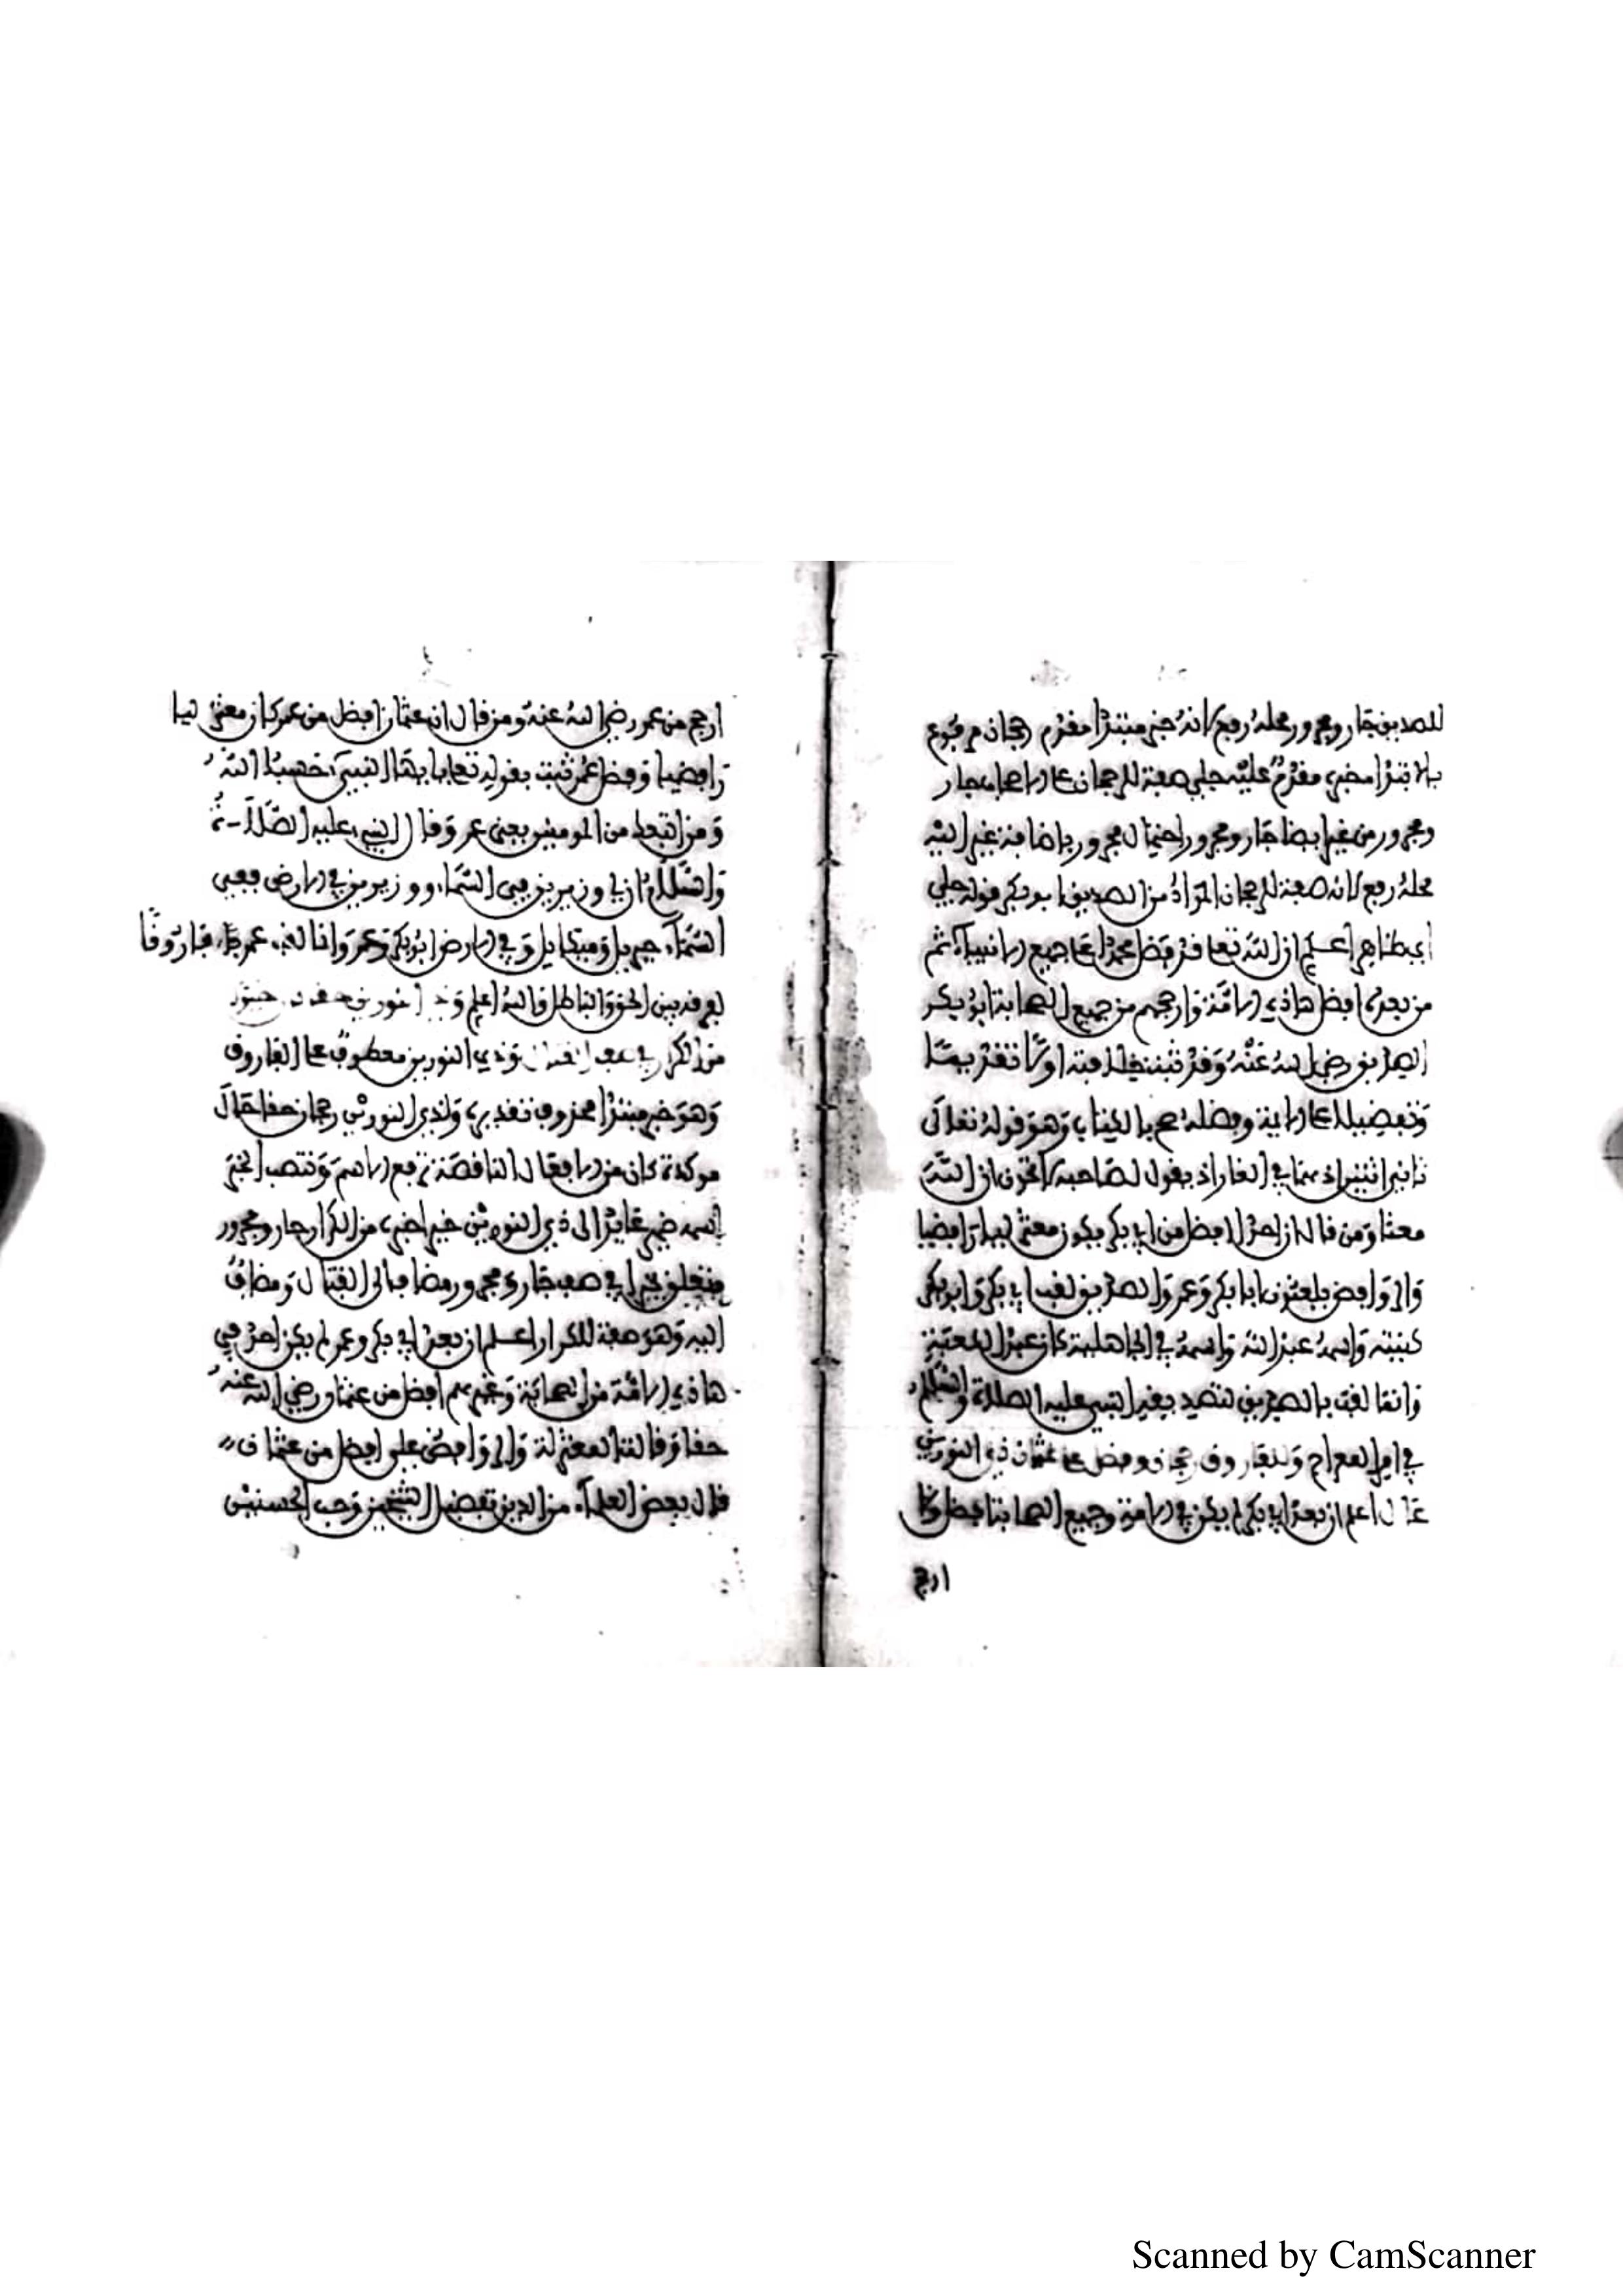 للصديق جار ومجرور محله رفع لانه خبر مبتدا مقدم رجحان مرفوع
بالابتدا مخبره مقدم عليه جلي صفة للرجحان على الاعاب جار
ومجرور من غير ايضا جار ومجرور احتمال مجرور باضافة غير اليه
محله رفع لانه صفة للرجحان المراد من الصديق ابو بكر قوله جلي
اي ظاهر اعلم ان الله تعا قد فضل محمدا على جميع الانبياء ثم
من بعده افضل هاذه الامة وارجحهم من جميع الصحابة ابو بكر
الصديق رضي الله عنه وقد ثبت خلافته اولا تقديما
وتفضيلا على الاية وفضله صح بالكتاب وهو قوله تعالى
ثاني اثنين اذ هما في الغار اذ يقول لصاحبه لا تحزن ان الله
معنا ومن قال ان احدا افضل من ابي بكر يكون معتزليا رافضيا
والروافض يلعنون ابا بكر وعمر والصديق لقب ابي بكر وابو بكر
كنيته واسمه عبد الله واسمه في الجاهلية كان عبد الكعبة
وانما لقب بالصديق لتصديقه النبي عليه الصلاة والسلام
في امر المعراج وللفاروق رجحان وفضل على عثمان ذي النورين
عال اعلم ان بعد ابي بكر لم يكن في الامة وجميع الصحابة افضل ولا
ارجح
ارجح من عمر رضي الله عنه ومن قال ان عثمان افضل من عمر كان معتزليا
رافضيا وفضل عمر ثبت بقوله تعا يا يها النبيء حسبك الله
ومن اتبعك من المومنين يعني عمر وقال النبي عليه الصلاة
والسلام ان لي وزيرين في السماء ووزيرين في الارض ففي
السماء جبريل وميكايل وفي الارض ابو بكر وعمر وانما لقب عمر فاروقا
لفرقه بين الحق والباطل والله اعلم
من الكرار في صف القتال وذي النورين معطوف على الفاروق
وهو خبر مبتدا محذوف تقديره ولذي النورين رجحان حقا حال
موكدة كان من الافعال الناقصة ترفع الاسم وتنصب الخبر
اسمه ضمير عايد الى ذي النورين خير خبره من الكرار جار ومجرور
متعلق بخير في صف جار ومجرور مضاف الى القتال ومضاف
اليه وهو صفة للكرار اعلم ان بعد ابي بكر وعمر لم يكن احد في
هاذه الامة من الصحابة وغيرهم افضل من عثمان رضي الله عنه
حقا وقالت المعتزلة والروافض علي افضل من عثمان
قال بعض العلماء من الدين تفضيل الشيخين وحب الحسنين
Scanned by CamScanner